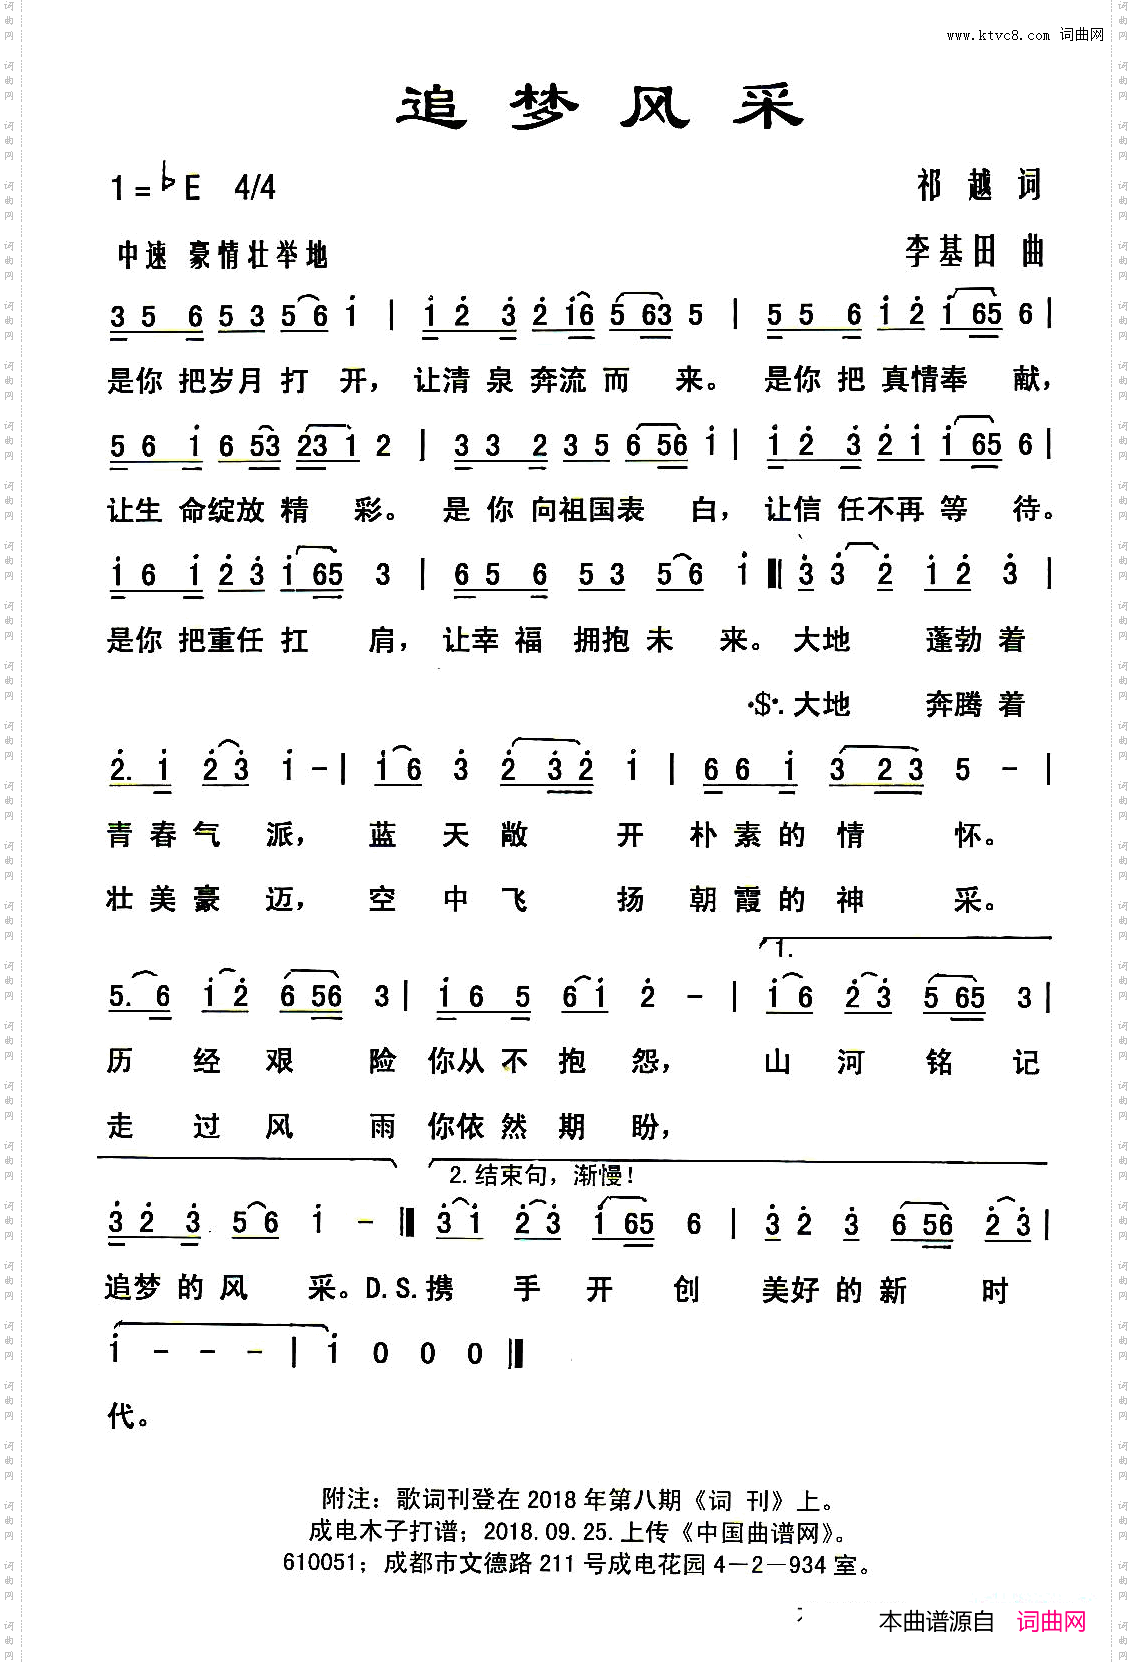 www.ktvc8.com 词曲网
追梦风采
1=♭E 4/4
祁越词
中速 豪情壮举地
李基田 曲
3 5 6 5 3 5 6 i | i 2 3 2 i6 5 63 5 | 5 5 6 i 2 i 65 6 |
是你 把岁月 打 开， 让清 泉 奔流 而 来。 是你 把 真情奉 献，
5 6 i 6 53 23 i 2 | 3 3 2 3 5 6 56 i | i 2 3 2 i i 65 6 |
让生 命绽放 精 彩。 是 你 向祖国表 白， 让信 任不再 等 待。
i 6 i 2 3 i 65 3 | 6 5 6 5 3 5 6 i ‖ 3 3 2 i 2 3 |
是你 把重任 扛 肩， 让幸 福 拥抱 未 来。 大地 蓬勃 着
·$·. 大地 奔腾 着
2. i 2 3 i - | i 6 3 2 3 2 i | 6 6 i 3 2 3 5 - |
青 春 气 派， 蓝 天 敞 开 朴 素 的 情 怀。
壮 美 豪 迈， 空 中 飞 扬 朝 霞 的 神 采。
1.
5. 6 i 2 6 56 3 | i 6 5 6 i 2 - | i 6 2 3 5 65 3 |
历 经 艰 险 你从 不 抱 怨， 山 河 铭 记
走 过 风 雨 你依 然 期 盼，
2. 结束句，渐慢！
3 2 3 5 6 i - ‖ 3 i 2 3 i 65 6 | 3 2 3 6 56 2 3 |
追梦 的 风 采。D.S. 携 手 开 创 美好 的 新 时
i - - - | i 0 0 0 ‖
代。
附注：歌词刊登在 2018 年第八期《词 刊》上。
成电木子打谱；2018.09.25.上传《中国曲谱网》。
610051；成都市文德路 211 号成电花园 4－2－934 室。
本曲谱源自 词曲网